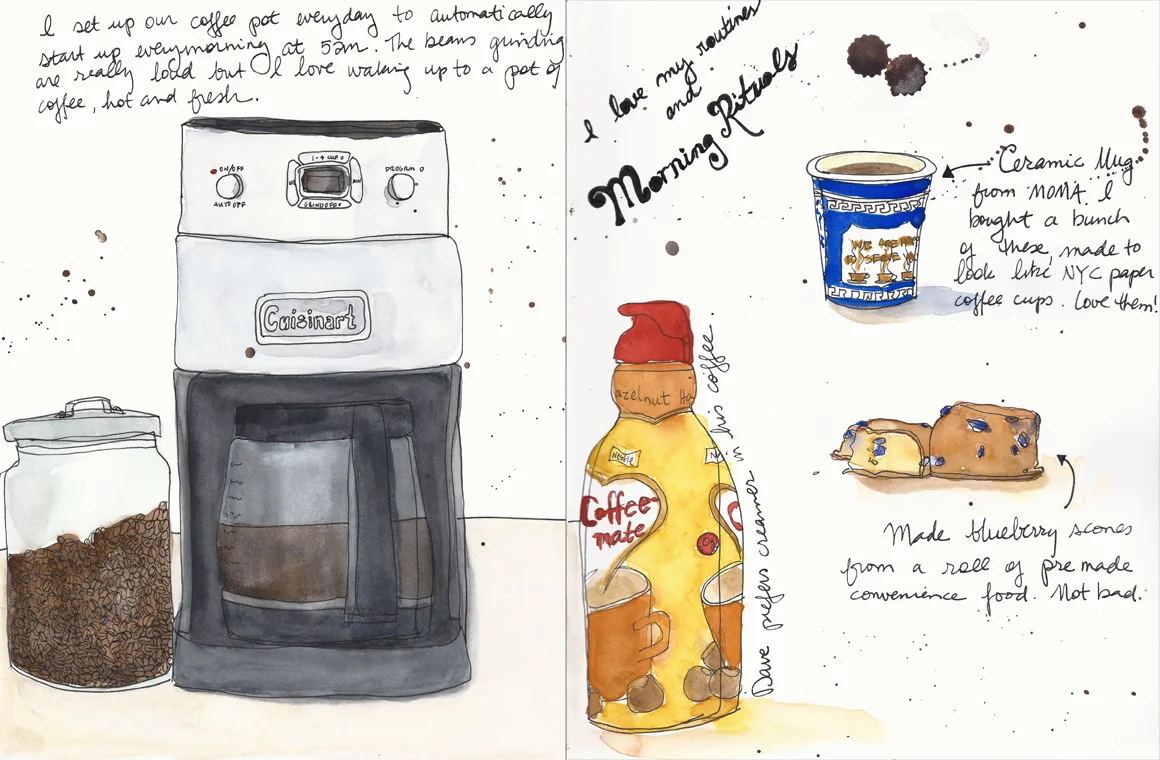 I set up our coffee pot everyday to automatically
start up everymorning at 5am. The beans grinding
are really loud but I love waking up to a pot of
coffee, hot and fresh.
ON/OFF
AUTO OFF
1-4 CUP
GRIND OFF
PROGRAM
Cuisinart
I love my routines
and
Morning Rituals
Ceramic Mug
from MOMA. I
bought a bunch
of these, made to
look like NYC paper
coffee cups. Love them!
WE ARE HAP
TO SERVE YOU
azelnut Ha
Nestle
N
Coffee
mate
C
Dave prefers creamer in his coffee.
Made blueberry scones
from a roll of pre made
convenience food. Not bad.